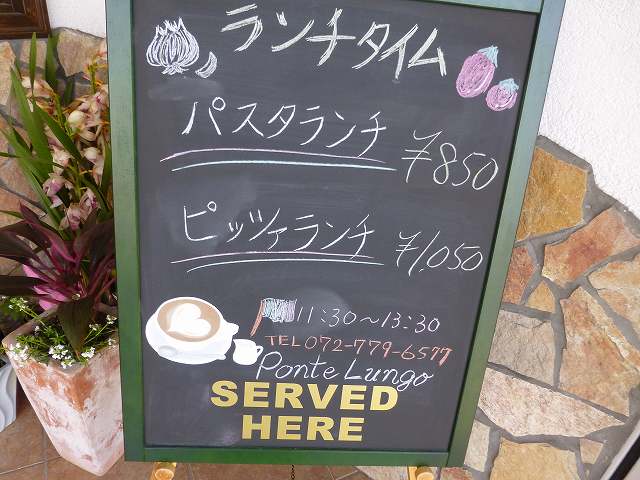 ランチタイム
パスタランチ ¥850
ピッツァランチ ¥1,050
11:30~13:30
TEL072-779-6577
Ponte Lungo
SERVED
HERE